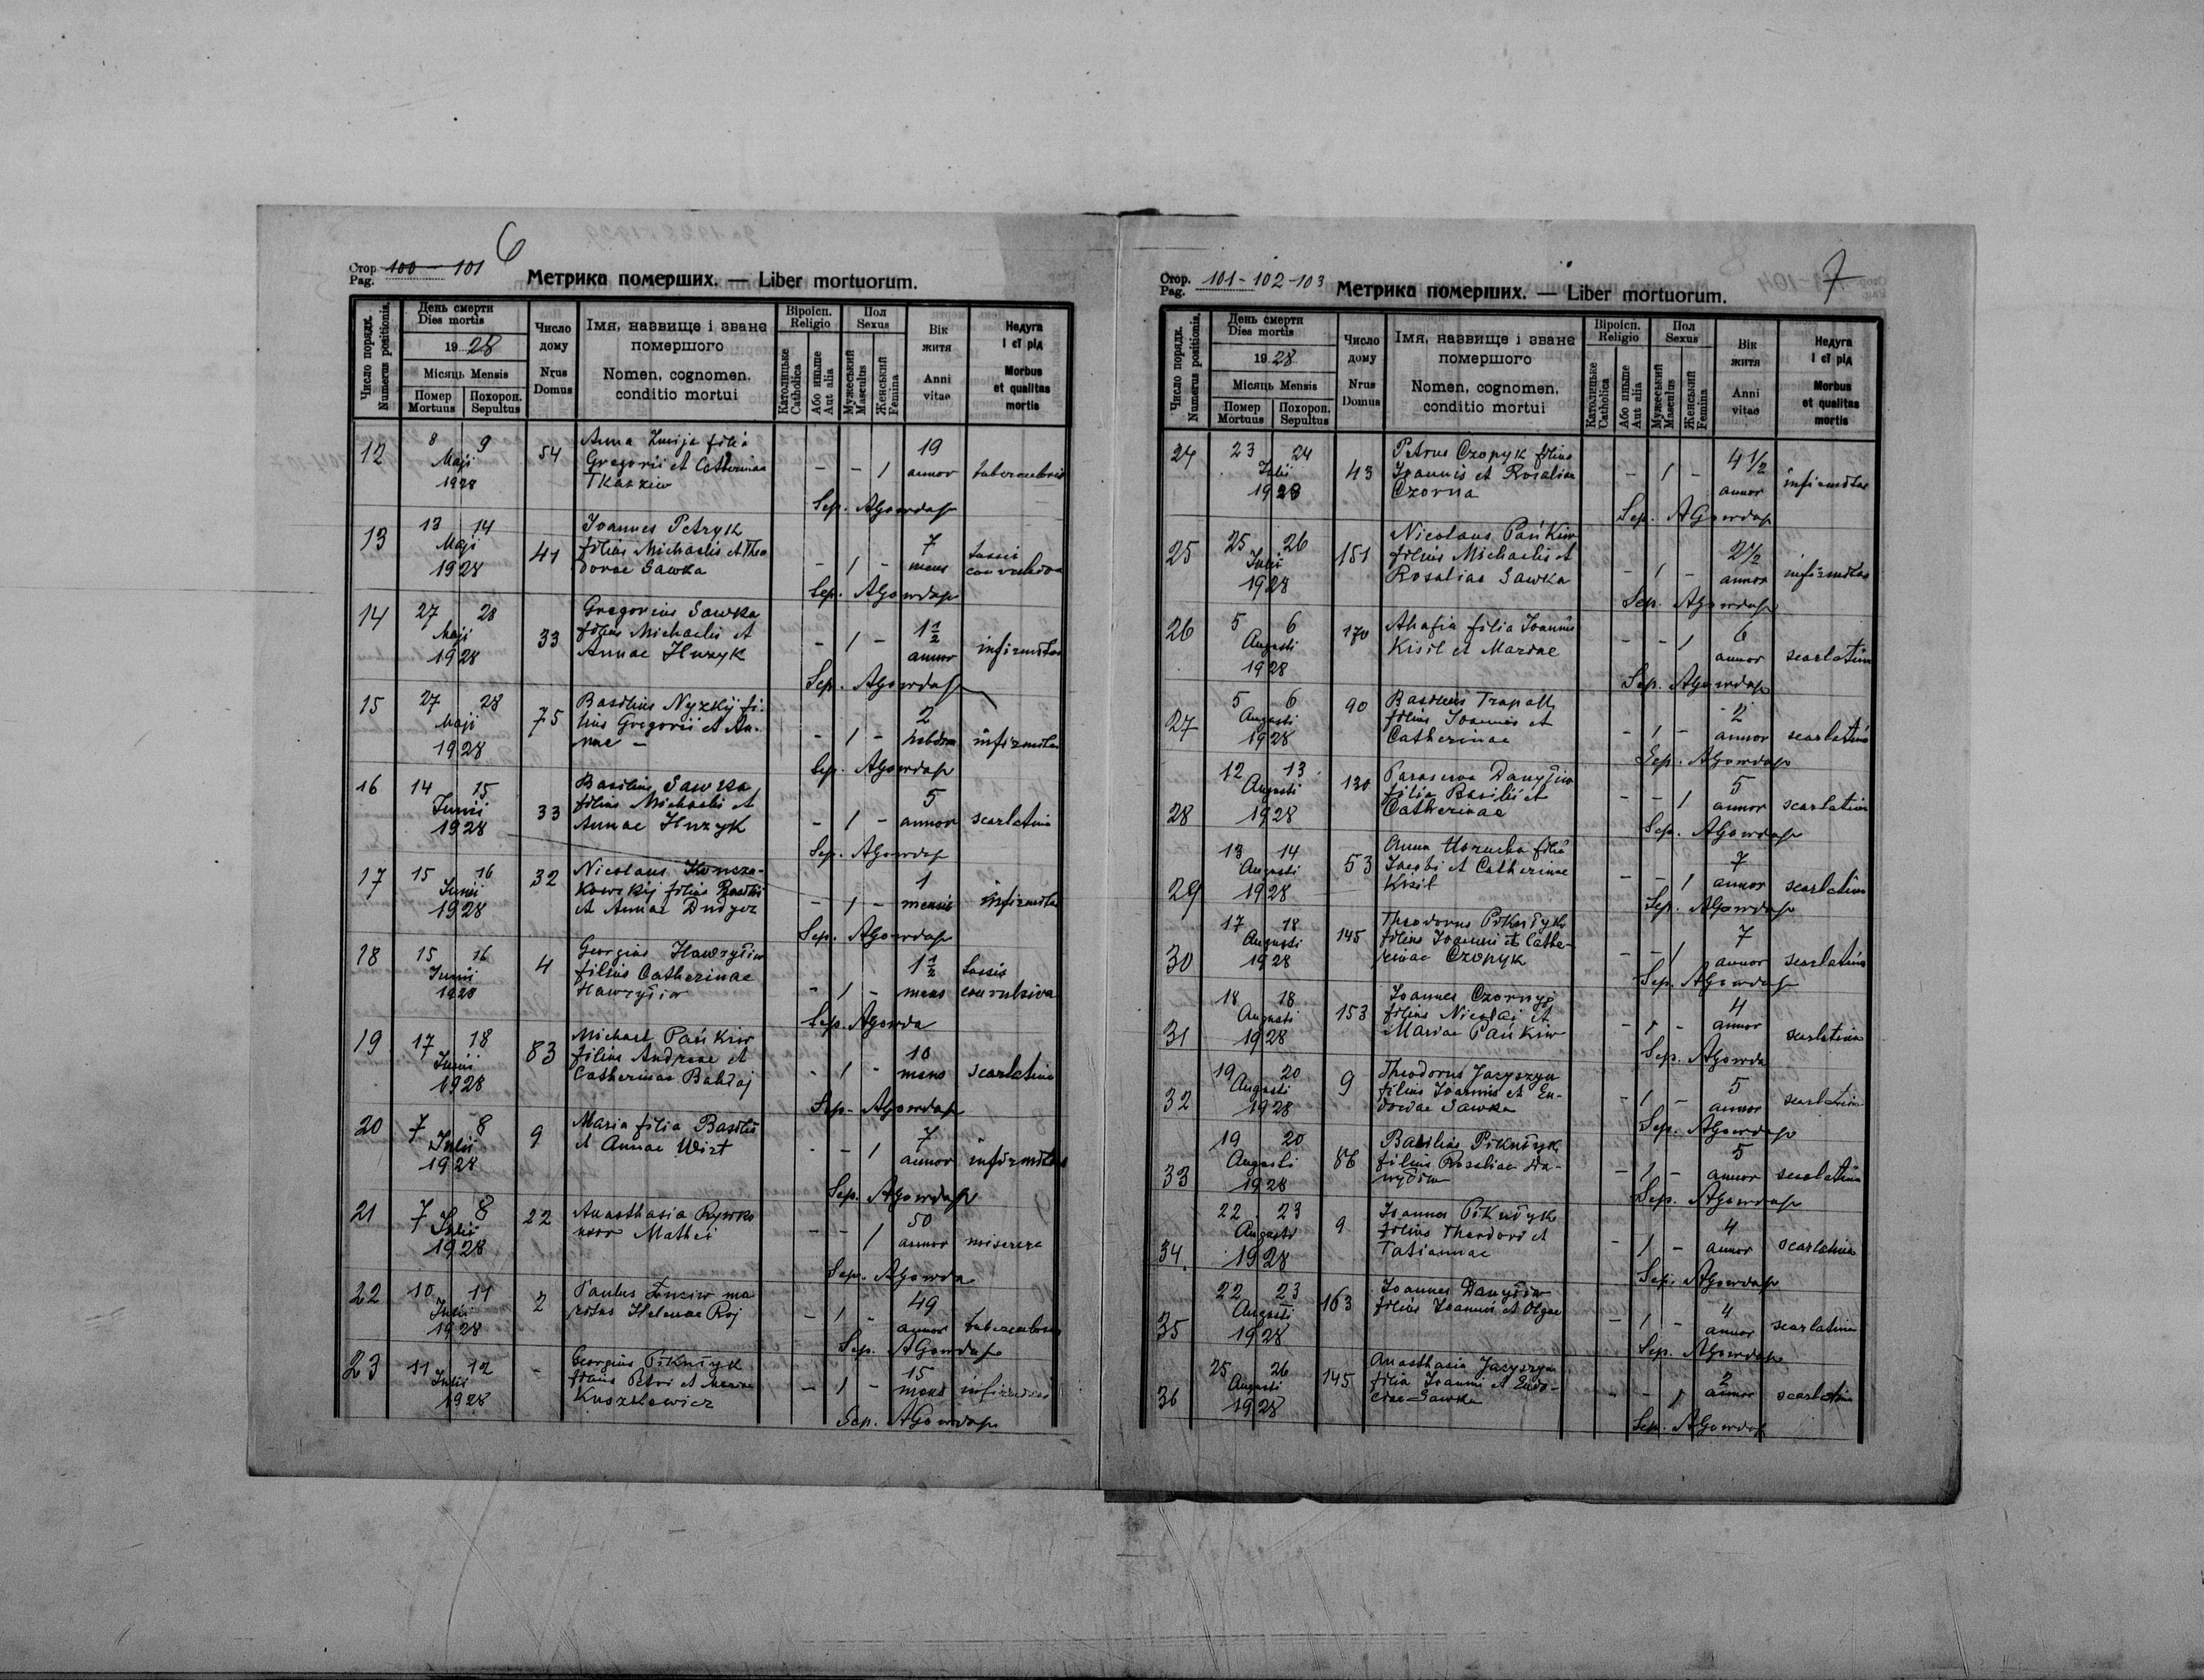 6
Стор. 100 - 101
Pag.
Метрика померших. — Liber mortuorum.
Число порядк.
Numerus positionis.
День смерти
Dies mortis
19 28
Місяць Mensis
Помер
Mortuus
Похорон.
Sepultus
Число
дому
Nrus
Domus
Імя, назвище і зване
помершого
Nomen, cognomen,
conditio mortui
Віроісп.
Religio
Католицьке
Catholica
Або иньше
Aut alia
Пол
Sexus
Мужеський
Masculus
Женський
Femina
Вік
житя
Anni
vitae
Недуга
і єї рід
Morbus
et qualitas
mortis
12 8 9 Maji 1928 54
Anna Zmija filia
Gregorii et Catherinae
Tkaczew
- - 1 19 annor
Sep. AGowda
13 13 14 Maji 1928 41
Joannes Petryk
filius Michaelis et Theo
dorae Sawka
- 1 - 7 mens tussis
Sep. AGowda
14 27 28 Maji 1928 33
Gregorius Sawka
filius Michaelis et
Annae Huzyk
- 1 - 1 1/2 annor infirmitas
Sep. AGowda
15 27 28 Maji 1928 75
Basilius Nyzkij fi-
lius Gregorii et An-
nae -
- 1 - 2 hebdom infirmitas
Sep. AGowda
16 14 15 Junii 1928 33
Basilius Sawka
filius Michaelis et
Annae Huzyk
- 1 - 5 annor scarlatina
Sep. AGowda
17 15 16 Junii 1928 32
Nicolaus
filius Basilii
et Annae
- 1 - 1 mensis infirmitas
Sep. AGowda
18 15 16 Junii 1928 4
Georgius Hawryliw
filius Catherinae
Hawryliw
- 1 - 1 1/2 mens tussis
convulsiva
Sep. AGowda
19 17 18 Junii 1928 83
Michael Pańkiw
filius Andreae et
Catherinae Bahlaj
- 1 - 10 mens scarlatina
Sep. AGowda
20 7 8 Julii 1928 9
Maria filia Basilii
et Annae Wirt
- - 1 7 annor infirmitas
Sep. AGowda
21 7 8 Julii 1928 22
Anasthasia Rywko
uxor Mathei
- - 1 50 annor miserere
Sep. AGowda
22 10 11 Julii 1928 2
Paulus ma
ritus Helenae Roj
- 1 - 49 annor tuberculosis
Sep. AGowda
23 11 12 Julii 1928 -
Georgius Pikulyk
filius Petri et
- 1 - 15 mens
Sep. AGowda
7
Стор. 101 - 102 - 103
Pag.
Метрика померших. — Liber mortuorum.
Число порядк.
Numerus positionis.
День смерти
Dies mortis
19 28
Місяць Mensis
Помер
Mortuus
Похорон.
Sepultus
Число
дому
Nrus
Domus
Імя, назвище і зване
помершого
Nomen, cognomen,
conditio mortui
Віроісп.
Religio
Католицьке
Catholica
Або иньше
Aut alia
Пол
Sexus
Мужеський
Masculus
Женський
Femina
Вік
житя
Anni
vitae
Недуга
і єї рід
Morbus
et qualitas
mortis
24 23 24 Julii 1928 43
Petrus Czopyk filius
Joannis et Rosaliae
Czorna
- 1 - 4 1/2 annor infirmitas
Sep. AGowda
25 25 26 Julii 1928 151
Nicolaus Pańkiw
filius Michaelis et
Rosaliae Sawka
- 1 - 2 1/2 annor infirmitas
Sep. AGowda
26 5 6 Augusti 1928 170
Ahafia filia Joannis
Kisil et Mariae
- - 1 6 annor scarlatina
Sep. AGowda
27 5 6 Augusti 1928 90
Basilius
filius Joannis et
Catherinae
- 1 - 2 annor scarlatina
Sep. AGowda
28 12 13 Augusti 1928 130
Parascewa Danyliw
filia Basilii et
Catherinae
- - 1 5 annor scarlatina
Sep. AGowda
29 13 14 Augusti 1928 53
Anna filia
Jacobi et Catherinae
Kisil
- - 1 7 annor scarlatina
Sep. AGowda
30 17 18 Augusti 1928 145
Theodorus Pikulyk
filius Joannis et Cathe-
rinae Czopyk
- - 1 7 annor scarlatina
Sep. AGowda
31 18 18 Augusti 1928 153
Joannes Czornyj
filius Nicolai et
Mariae Pańkiw
- 1 - 4 annor scarlatina
Sep. AGowda
32 19 20 Augusti 1928 9
Theodorus Jacyszyn
filius Joannis et Eu-
dociae Sawka
- 1 - 5 annor scarlatina
Sep. AGowda
33 19 20 Augusti 1928 86
Basilius Pikulyk
filius Rosaliae
- 1 - 5 annor scarlatina
Sep. AGowda
34. 22 23 Augusti 1928 9
Joannes Pikulyk
filius Theodori et
Tatiannae
- 1 - 4 annor scarlatina
Sep. AGowda
35 22 23 Augusti 1928 163
Joannes Danyliw
filius Joannis et Olgae
- 1 - 4 annor scarlatina
Sep. AGowda
36 25 26 Augusti 1928 145
Anasthasia Jacyszyn
filia Joannis et Eudo-
ciae Sawka
- - 1 2 annor scarlatina
Sep. AGowda